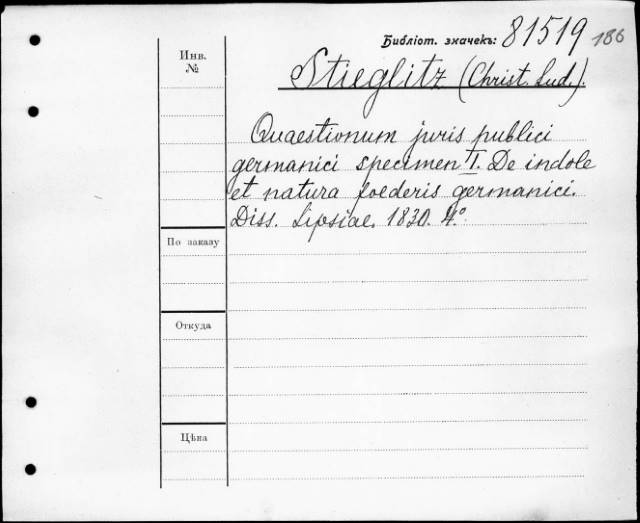 Библіот. значекъ: 81519 186
Инв. №
Stieglitz (Christ. Lud.).
Quaestionum juris publici
germanici specimen I. De indole
et natura foederis germanici.
Diss. Lipsiae. 1830. 4.°
По заказу
Откуда
Цѣна